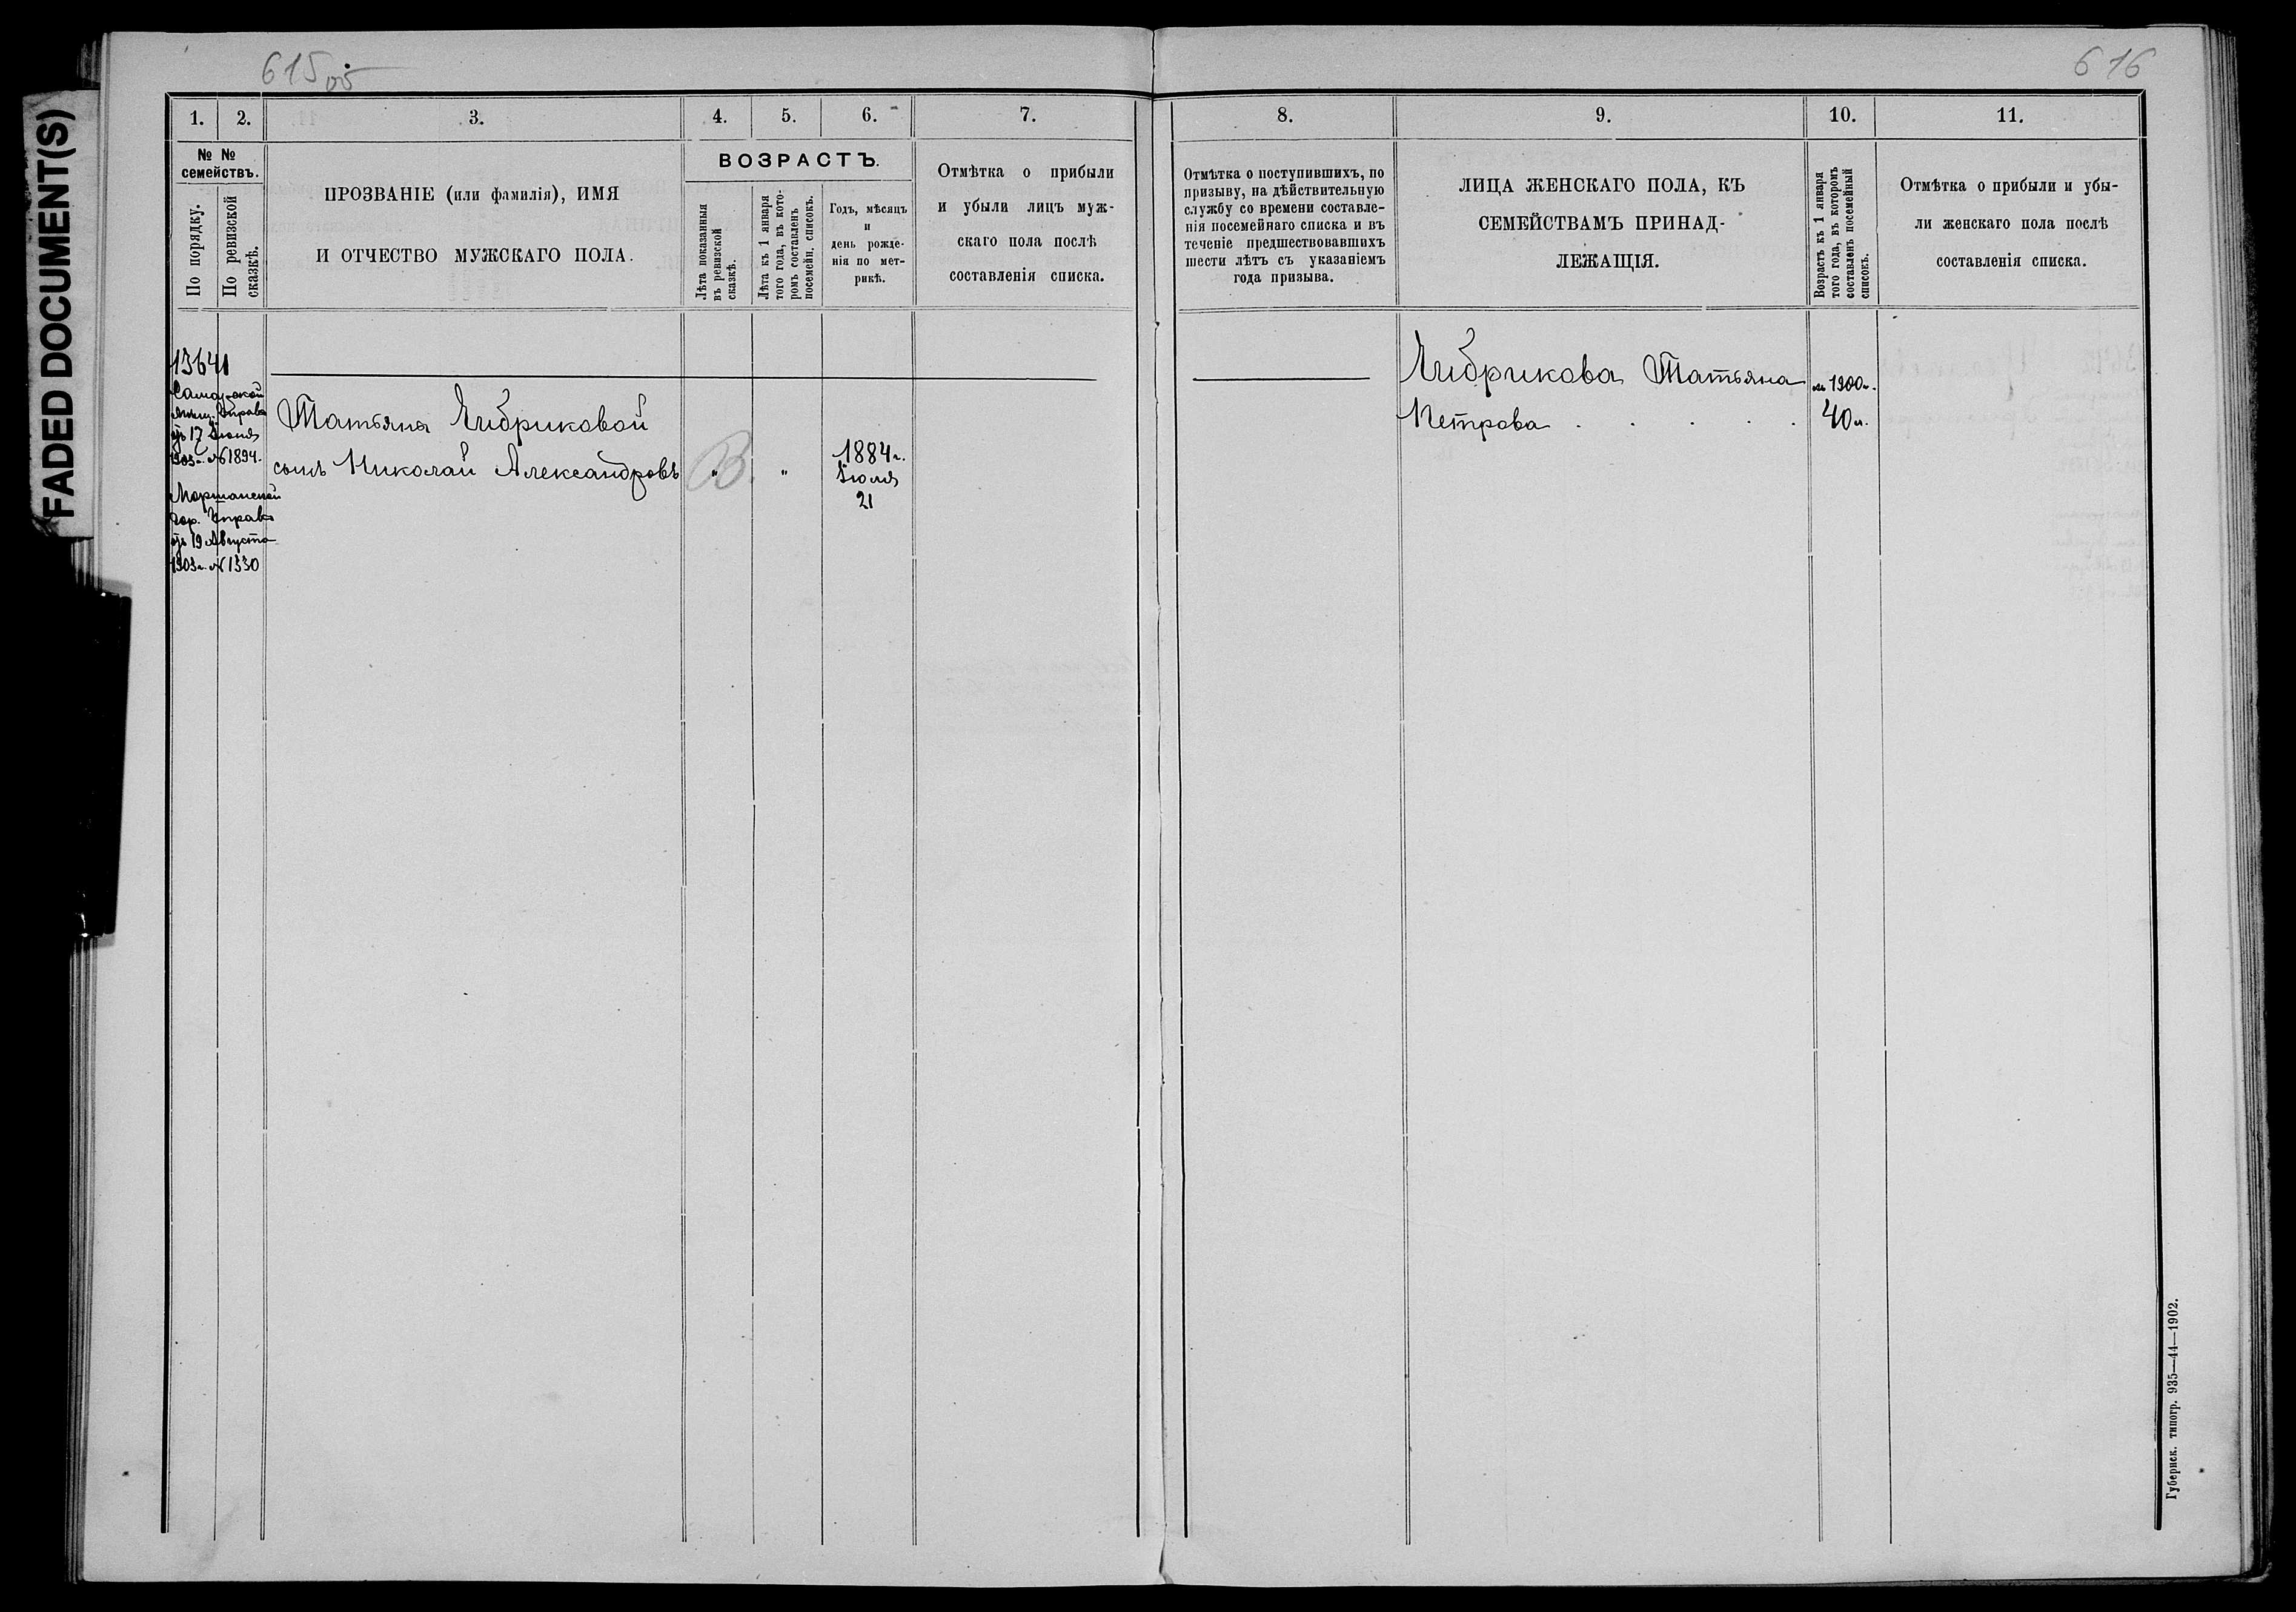 FADED DOCUMENT(S)
615 об
616
1. 2. 3. 4. 5. 6. 7. 8. 9. 10. 11.
№ №
семействъ.
По порядку.
По ревизской
сказкѣ.
ПРОЗВАНІЕ (или фамилія), ИМЯ
И ОТЧЕСТВО МУЖСКАГО ПОЛА.
ВОЗРАСТЪ.
Лѣта показанныя
въ ревизской
сказкѣ.
Лѣта къ 1 января
того года, въ кото-
ромъ составленъ
посемейн. списокъ.
Годъ, мѣсяцъ
и
день рожде-
нія по мет-
рикѣ.
Отмѣтка о прибыли
и убыли лицъ муж-
скаго пола послѣ
составленія списка.
Отмѣтка о поступившихъ, по
призыву, на дѣйствительную
службу со времени составле-
нія посемейнаго списка и въ
теченіе предшествовавшихъ
шести лѣтъ съ указаніемъ
года призыва.
ЛИЦА ЖЕНСКАГО ПОЛА, КЪ
СЕМЕЙСТВАМЪ ПРИНАД-
ЛЕЖАЩІЯ.
Возрастъ къ 1 января
того года, въ которомъ
составленъ посемейный
списокъ.
Отмѣтка о прибыли и убы-
ли женскаго пола послѣ
составленія списка.
13641
Самарской
мѣщ. Управы
отъ 17 Іюня
1903 г. № 1894.
Моршанской
гор. Управы
отъ 19 Августа
1903 г. № 1330
Татьяны Чибриковой
сынъ Николай Александровъ " "
1884 г.
Іюля
21
Чибрикова Татьяна 1900 г.
Петрова . . . . . 40 л.
Губернск. типогр. 935—44—1902.